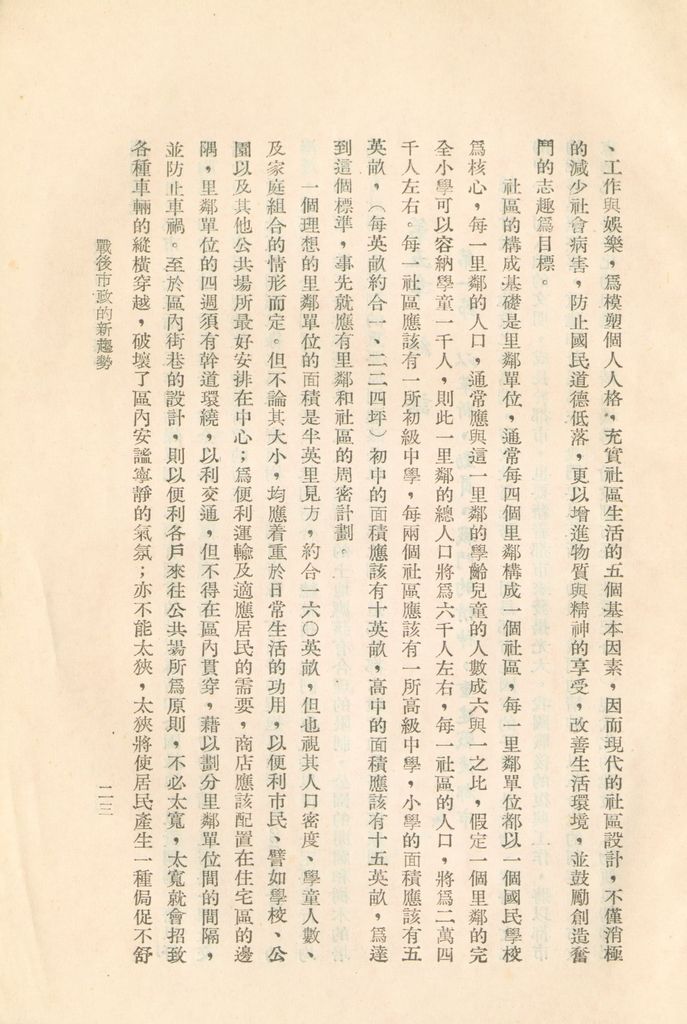 、工作與娛樂，爲模塑個人人格，充實社區生活的五個基本因素，因而現代的社區設計，不僅消極
的減少社會病害，防止國民道德低落，更以增進物質與精神的享受，改善生活環境，並鼓勵創造奮
鬥的志趣爲目標。
社區的構成基礎是里鄰單位，通常每四個里鄰構成一個社區，每一里鄰單位都以一個國民學校
爲核心，每一里鄰的人口，通常應與這一里鄰的學齡兒童的人數成六與一之比，假定一個里鄰的完
全小學可以容納學童一千人，則此一里鄰的總人口將爲六千人左右，每一社區的人口，將爲二萬四
千人左右。每一社區應該有一所初級中學，每兩個社區應該有一所高級中學，小學的面積應該有五
英畝，（每英畝約合一、二二四坪）初中的面積應該有十英畝，高中的面積應該有十五英畝，爲達
到這個標準，事先就應有里鄰和社區的周密計劃。
一個理想的里鄰單位的面積是半英里見方，約合一六〇英畝，但也視其人口密度、學童人數、
及家庭組合的情形而定。但不論其大小，均應着重於日常生活的功用，以便利市民、譬如學校、公
園以及其他公共場所最好安排在中心；爲便利運輸及適應居民的需要，商店應該配置在住宅區的邊
隅，里鄰單位的四週須有幹道環繞，以利交通，但不得在區內貫穿，藉以劃分里鄰單位間的間隔，
並防止車禍。至於區內街巷的設計，則以便利各戶來往公共場所爲原則，不必太寬，太寬就會招致
各種車輛的縱橫穿越，破壞了區內安謐寧靜的氣氛；亦不能太狹，太狹將使居民產生一種侷促不舒
戰後市政的新趨勢
二三